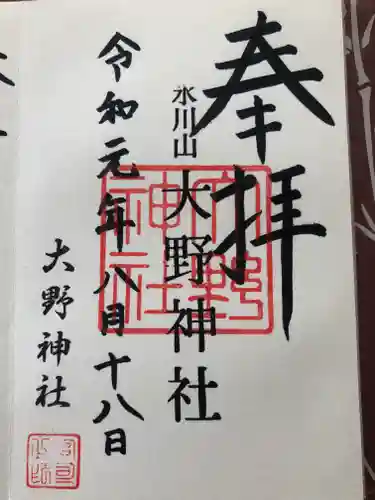 奉拝
氷川山
大野神社
令和元年八月十八日
大野神社
大野神社